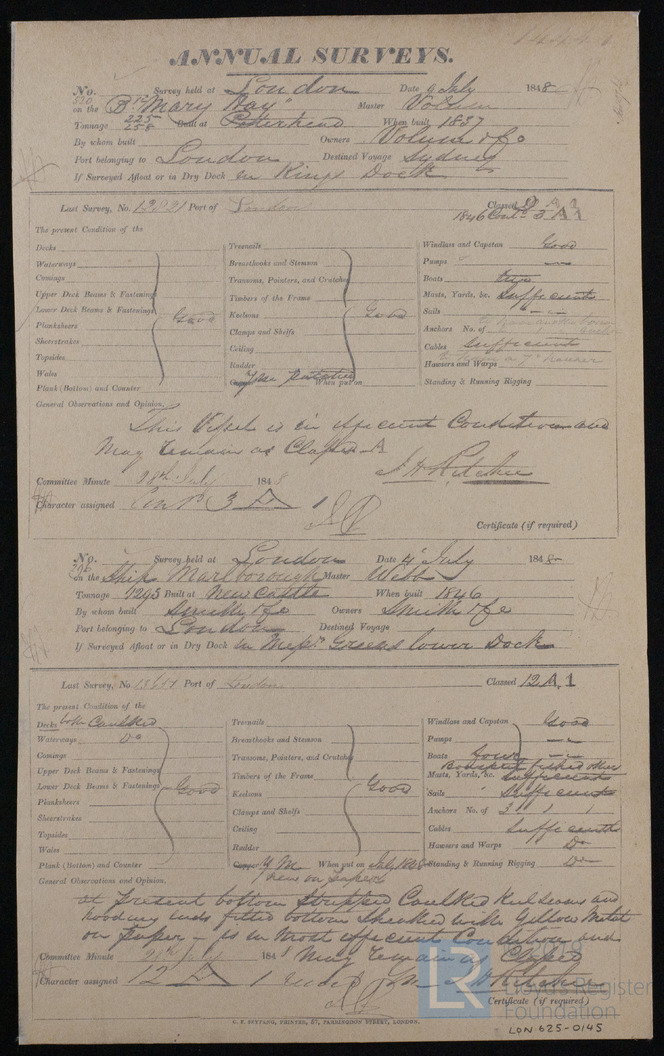 ANNUAL SURVEYS.
No. 520 Survey held at London Date 6 July 1848
on the Bg "Mary Hay" Master Volum
Tonnage 225 258 Built at Peterhead When built 1837
By whom built Owners Volum & Co
Port belonging to London Destined Voyage Sydney
If Surveyed Afloat or in Dry Dock in Kings Dock
Last Survey, No. Port of London Classed 9 A 1
1846 Contd 3 A 1
The present Condition of the
Decks
Waterways
Comings
Upper Deck Beams & Fastenings
Lower Deck Beams & Fastenings Good
Planksheers
Sheerstrakes
Topsides
Wales
Plank (Bottom) and Counter
Treenails
Breasthooks and Stemson
Transoms, Pointers, and Crutches
Timbers of the Frame
Keelsons Good
Clamps and Shelfs
Ceiling
Rudder
Copper When put on
Windlass and Capstan Good
Pumps
Boats
Masts, Yards, &c. Sufficient
Sails
Anchors No. of
Cables Sufficient
Hawsers and Warps
Standing & Running Rigging
General Observations and Opinion,
This Vessel is in efficient Condition and
May remain as Classed A
Committee Minute 1848
J H Ritchie
Character assigned Contd 3 A 1
Certificate (if required)
No. Survey held at London Date July 1848
on the Ship Marlborough Master Webb
Tonnage 1293 Built at Newcastle When built 1846
By whom built Smith & Co Owners Smith & Co
Port belonging to London Destined Voyage
If Surveyed Afloat or in Dry Dock in Messrs Greens lower Dock
Last Survey, No. Port of London Classed 12 A 1
The present Condition of the
Decks Caulked
Waterways Do
Comings
Upper Deck Beams & Fastenings
Lower Deck Beams & Fastenings Good
Planksheers
Sheerstrakes
Topsides
Wales
Plank (Bottom) and Counter
Treenails
Breasthooks and Stemson
Transoms, Pointers, and Crutches
Timbers of the Frame
Keelsons Good
Clamps and Shelfs
Ceiling
Rudder
Copper Y M When put on July 1848
new on paper
Windlass and Capstan Good
Pumps
Boats four
Bowsprit fished other
Masts, Yards, &c. Sufficient
Sails Sufficient
Anchors No. of 3 1 1
Cables Sufficient
Hawsers and Warps Do
Standing & Running Rigging Do
General Observations and Opinion,
at present bottom stripped Caulked Keel seams and
hooding ends fitted bottom Sheathed with Yellow Metal
on paper - is in most efficient Condition and
Committee Minute July 1848 May remain as Classed
Character assigned 12 A 1
J H Ritchie
Certificate (if required)
C. F. SEYFANG, PRINTER, 57, FARRINGDON STREET, LONDON.
LR
Lloyd's Register
Foundation
LON 625-0145